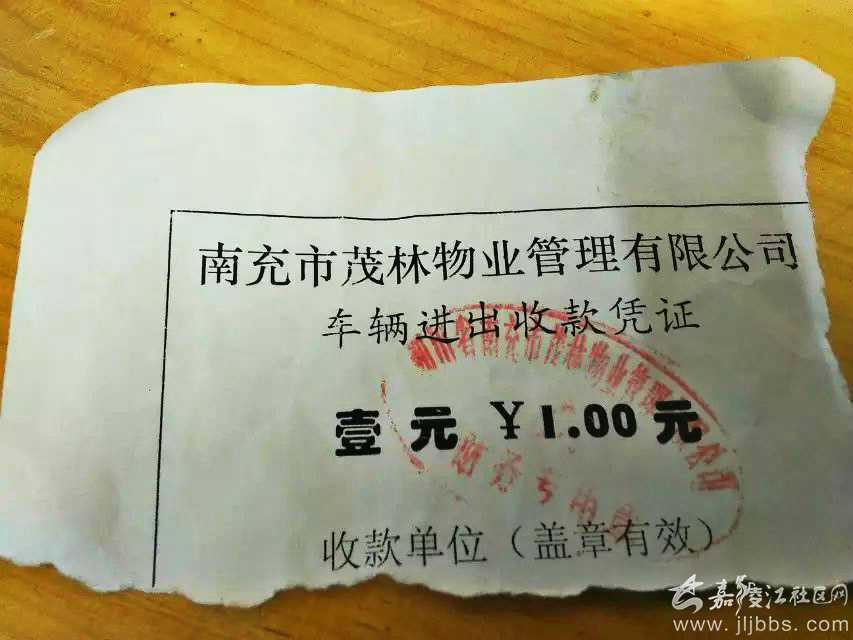 南充市茂林物业管理有限公司
车辆进出收款凭证
四川省南充市茂林物业管理有限公司
财务专用章
壹元 ¥1.00元
收款单位（盖章有效）
嘉陵江社区网
www.jljbbs.com